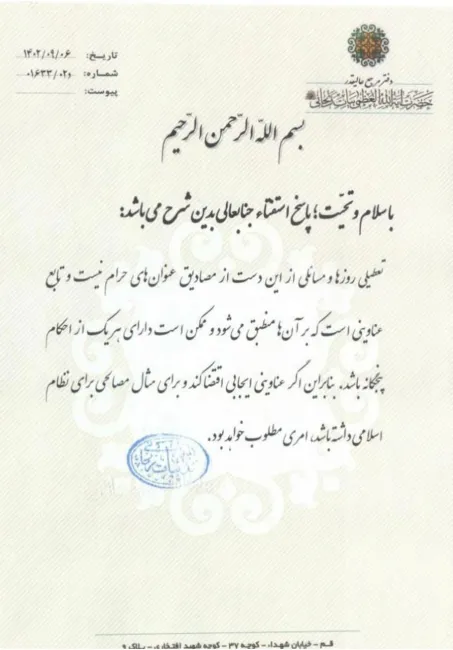 تاریخ: ۱۴۰۲/۰۹/۰۶
شماره: ۰۱۶۳۳/۰۲
پیوست:
دفتر مرجع عالیقدر
بسم الله الرّحمن الرّحیم
با سلام و تحیّت؛ پاسخ استفتاء جنابعالی بدین شرح می باشد:
تعطیلی روزها و مسائلی از این دست از مصادیق عنوان های حرام نیست و تابع
عناوینی است که بر آن ها منطبق می شود و ممکن است دارای هر یک از احکام
پنجگانه باشد. بنابراین اگر عناوینی ایجابی اقتضا کند و برای مثال مصالحی برای نظام
اسلامی داشته باشد، امری مطلوب خواهد بود.
قـم – خیابان شهدا، – کوچه ۳۷ – کوچه شهید افتخاری – پـلاک ۹